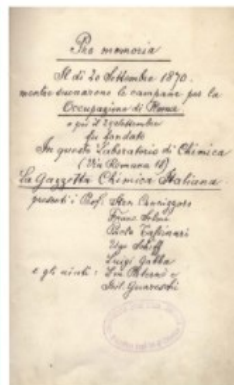 Pro memoria
Il dì 20 Settembre 1870.
mentre suonarono le campane per la
Occupazione di Roma
e più il 29 Settembre
fu fondata
In questo Laboratorio di Chimica
(Via Romana 19)
La Gazzetta Chimica Italiana
presenti i Prof. Stan Cannizzaro
Franc. Selmi
Paolo Tassinari
Ugo Schiff
Luigi Gabba
e gli aiuti: Em. Paternò e
Guareschi